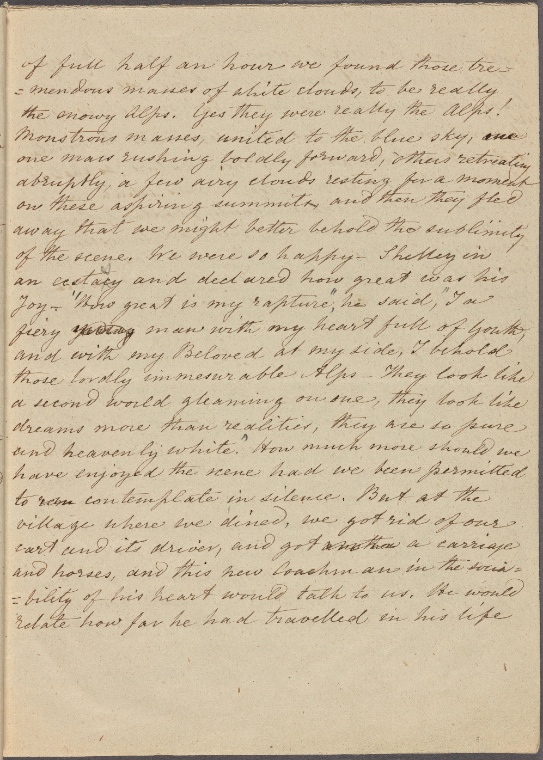 of full half an hour we found those tre=
=mendous masses of white clouds, to be really
the snowy Alps. Yes they were really the Alps!
Monstrous masses, united to the blue sky,
one mass rushing boldly forward, others retreating
abruptly, a few airy clouds resting for a moment
on these aspiring summits, and then they fled
away that we might better behold the sublimity
of the scene. We were so happy – Shelley in
an ecstacy and declared how great was his
Joy – "How great is my rapture," he said, "I a
fiery man with my heart full of Youth,
and with my Beloved at my side, I behold
those lordly immesurable Alps – They look like
a second world gleaming on one, they look like
dreams more than realities, they are so pure
and heavenly white." How much more should we
have enjoyed the scene had we been permitted
to contemplate in silence. But at the
village where we dined, we got rid of our
cart and its driver, and got a carriage
and horses, and this new Coachman in the socia=
=bility of his heart would talk to us. He would
relate how far he had travelled in his life